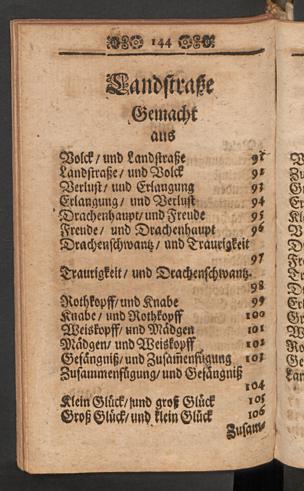 144
Landstraße
Gemacht
aus
Volck / und Landstraße 91
Landstraße / und Volck 92
Verlust / und Erlangung 93
Erlangung / und Verlust 94
Drachenhaupt / und Freude 95
Freude / und Drachenhaupt 96
Drachenschwantz / und Traurigkeit
97
Traurigkeit / und Drachenschwantz.
98
Rothkopff / und Knabe 99
Knabe / und Rothkopff 100
Weiskopff / und Mädgen 101
Mädgen / und Weiskopff 102
Gefängniß / und Zusam̃enfügung 103
Zusammenfügung / und Gefängniß
104
Klein Glück / und groß Glück 105
Groß Glück / und klein Glück 106
Zusam-